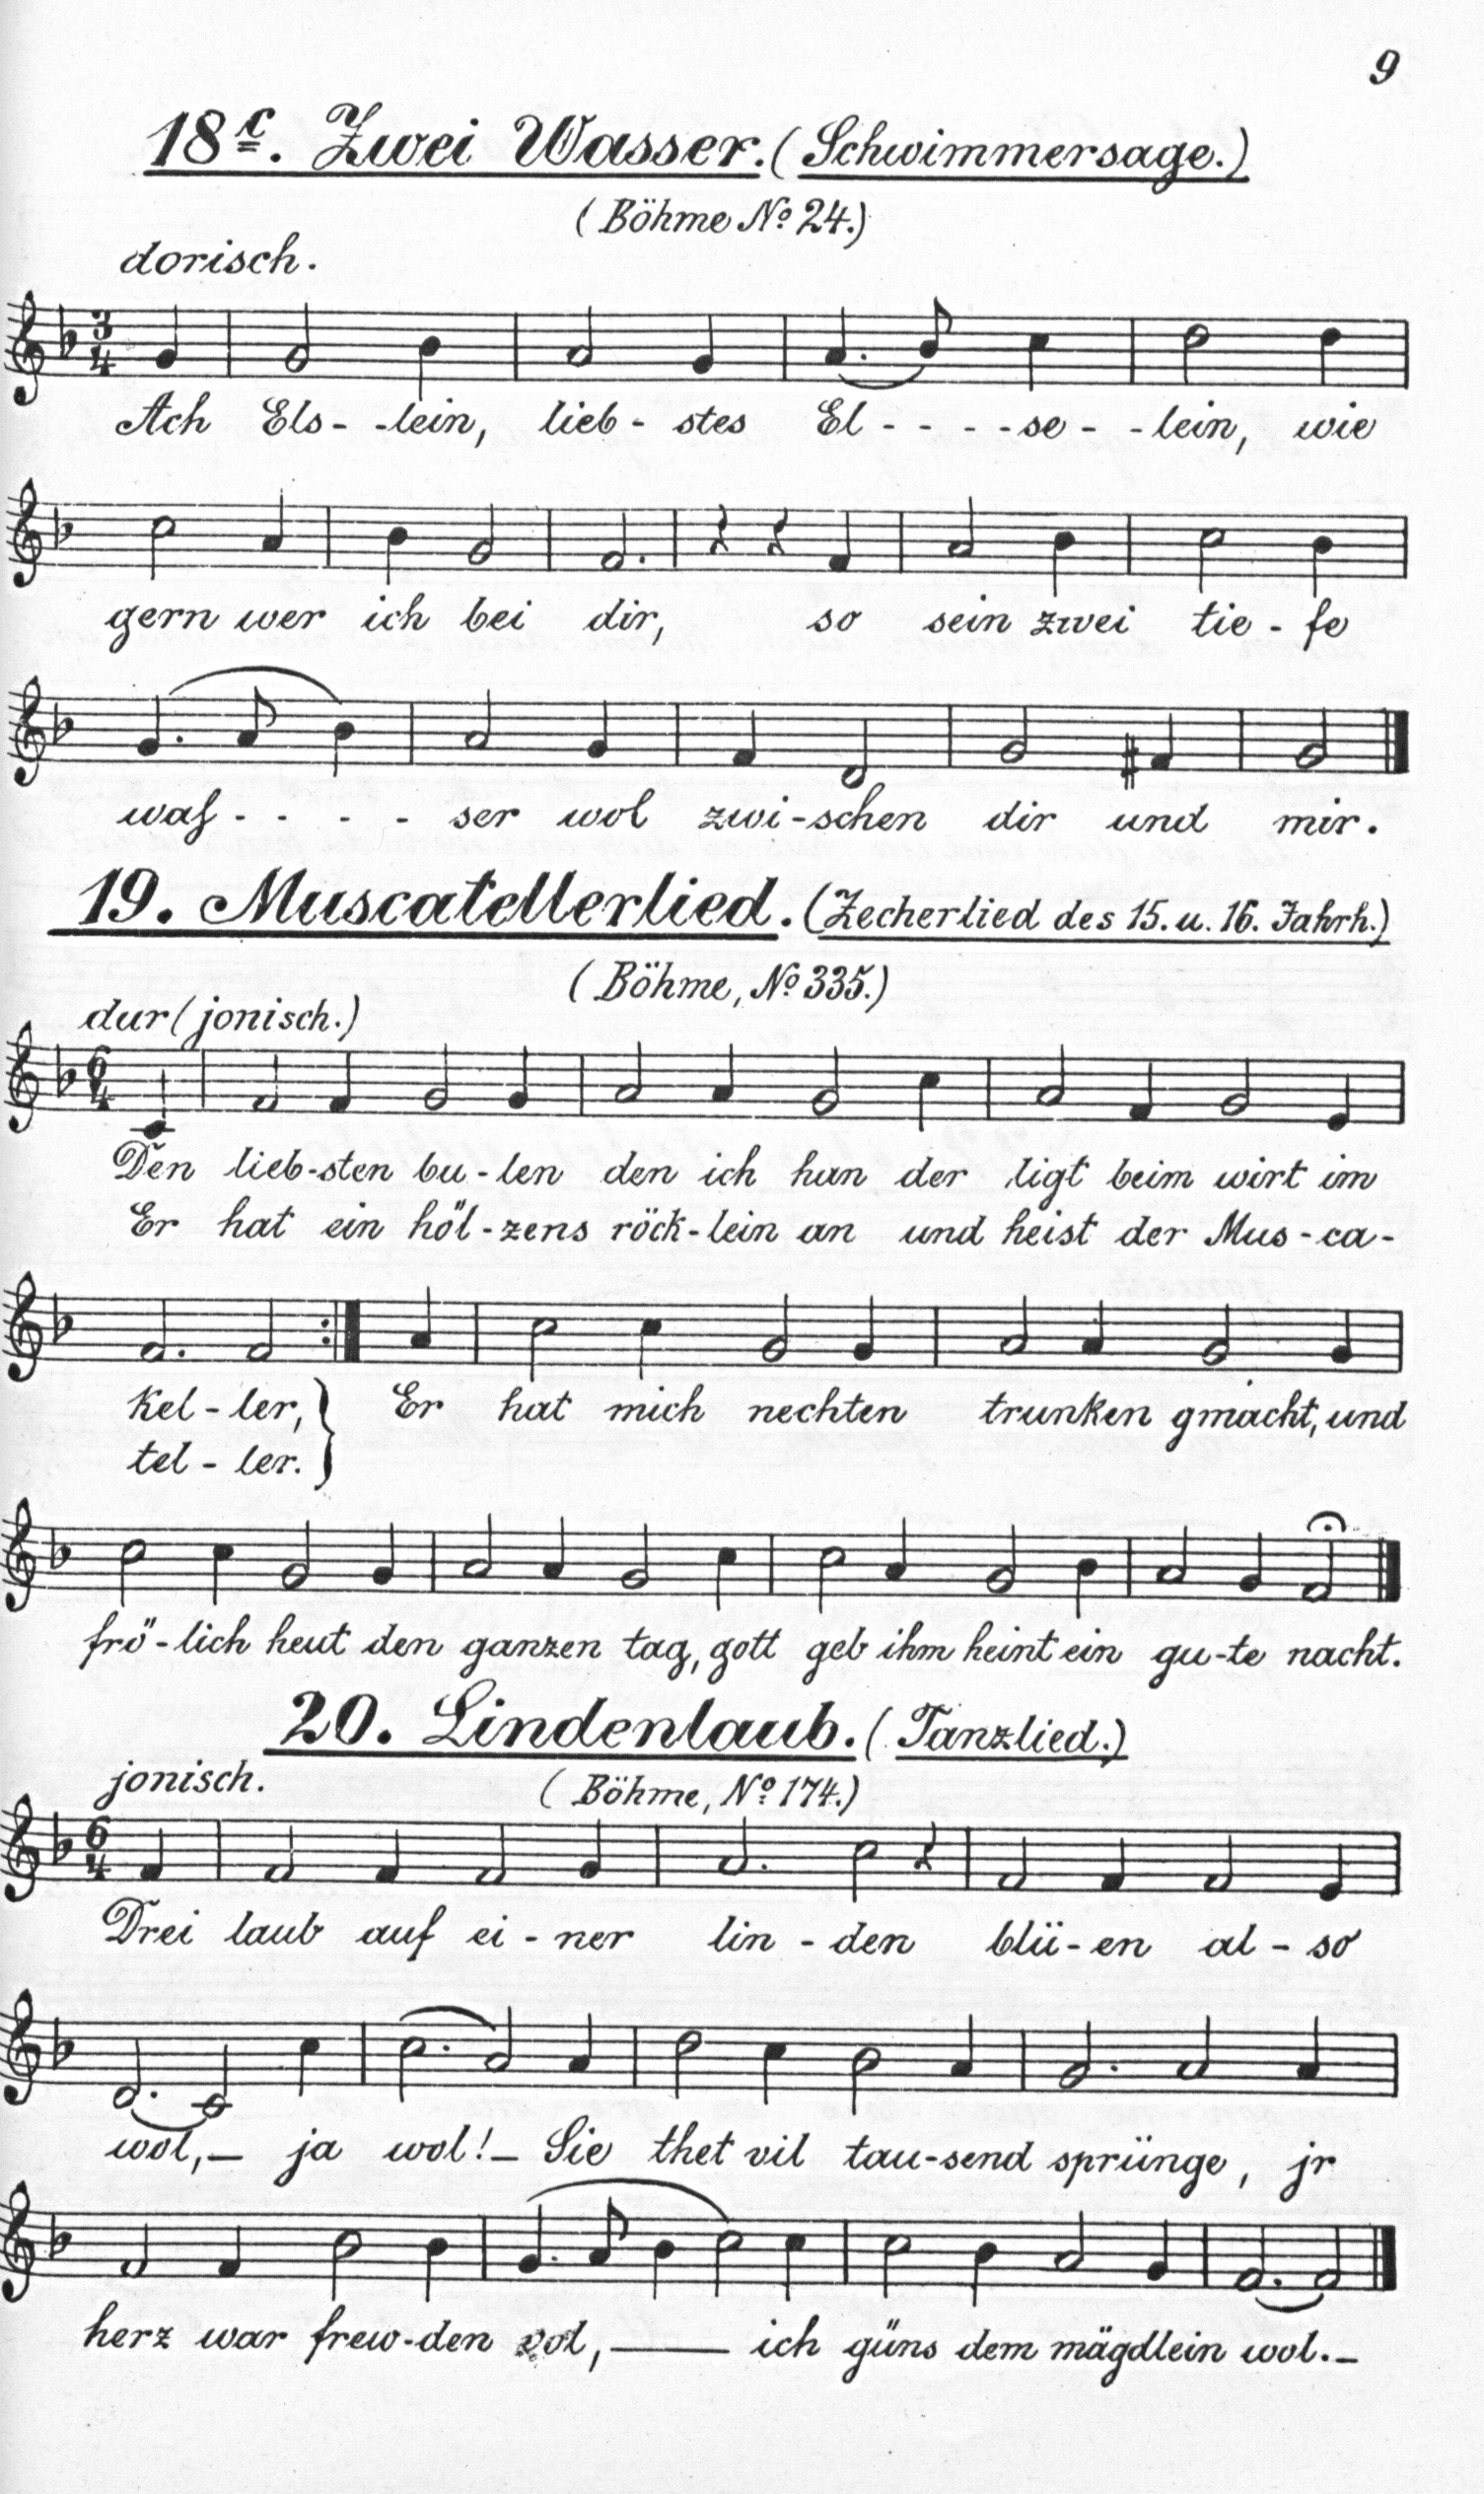 9
18c. Zwei Wasser. (Schwimmersage.)
(Böhme No 24.)
dorisch.
3
4
Ach Els- -lein, lieb- stes El - - - -se - -lein, wie
gern wer ich bei dir, so sein zwei tie - fe
waſ - - - - ser wol zwi-schen dir und mir.
19. Muscatellerlied. (Zecherlied des 15. u. 16. Jahrh.)
(Böhme, No 335.)
dur (jonisch.)
6
4
Den lieb-sten bu-len den ich han der ligt beim wirt im
Er hat ein höl-zens röck-lein an und heist der Mus-ca-
kel-ler, } Er hat mich nechten trunken gmacht, und
tel-ler.
frö-lich heut den ganzen tag, gott geb ihm heint ein gu-te nacht.
20. Lindenlaub. (Tanzlied.)
jonisch.
(Böhme, No 174.)
6
4
Drei laub auf ei-ner lin-den blü-en al-so
wol,— ja wol!— Sie thet vil tau-send sprünge, jr
herz war frew-den vol,— ich güns dem mägdlein wol.—